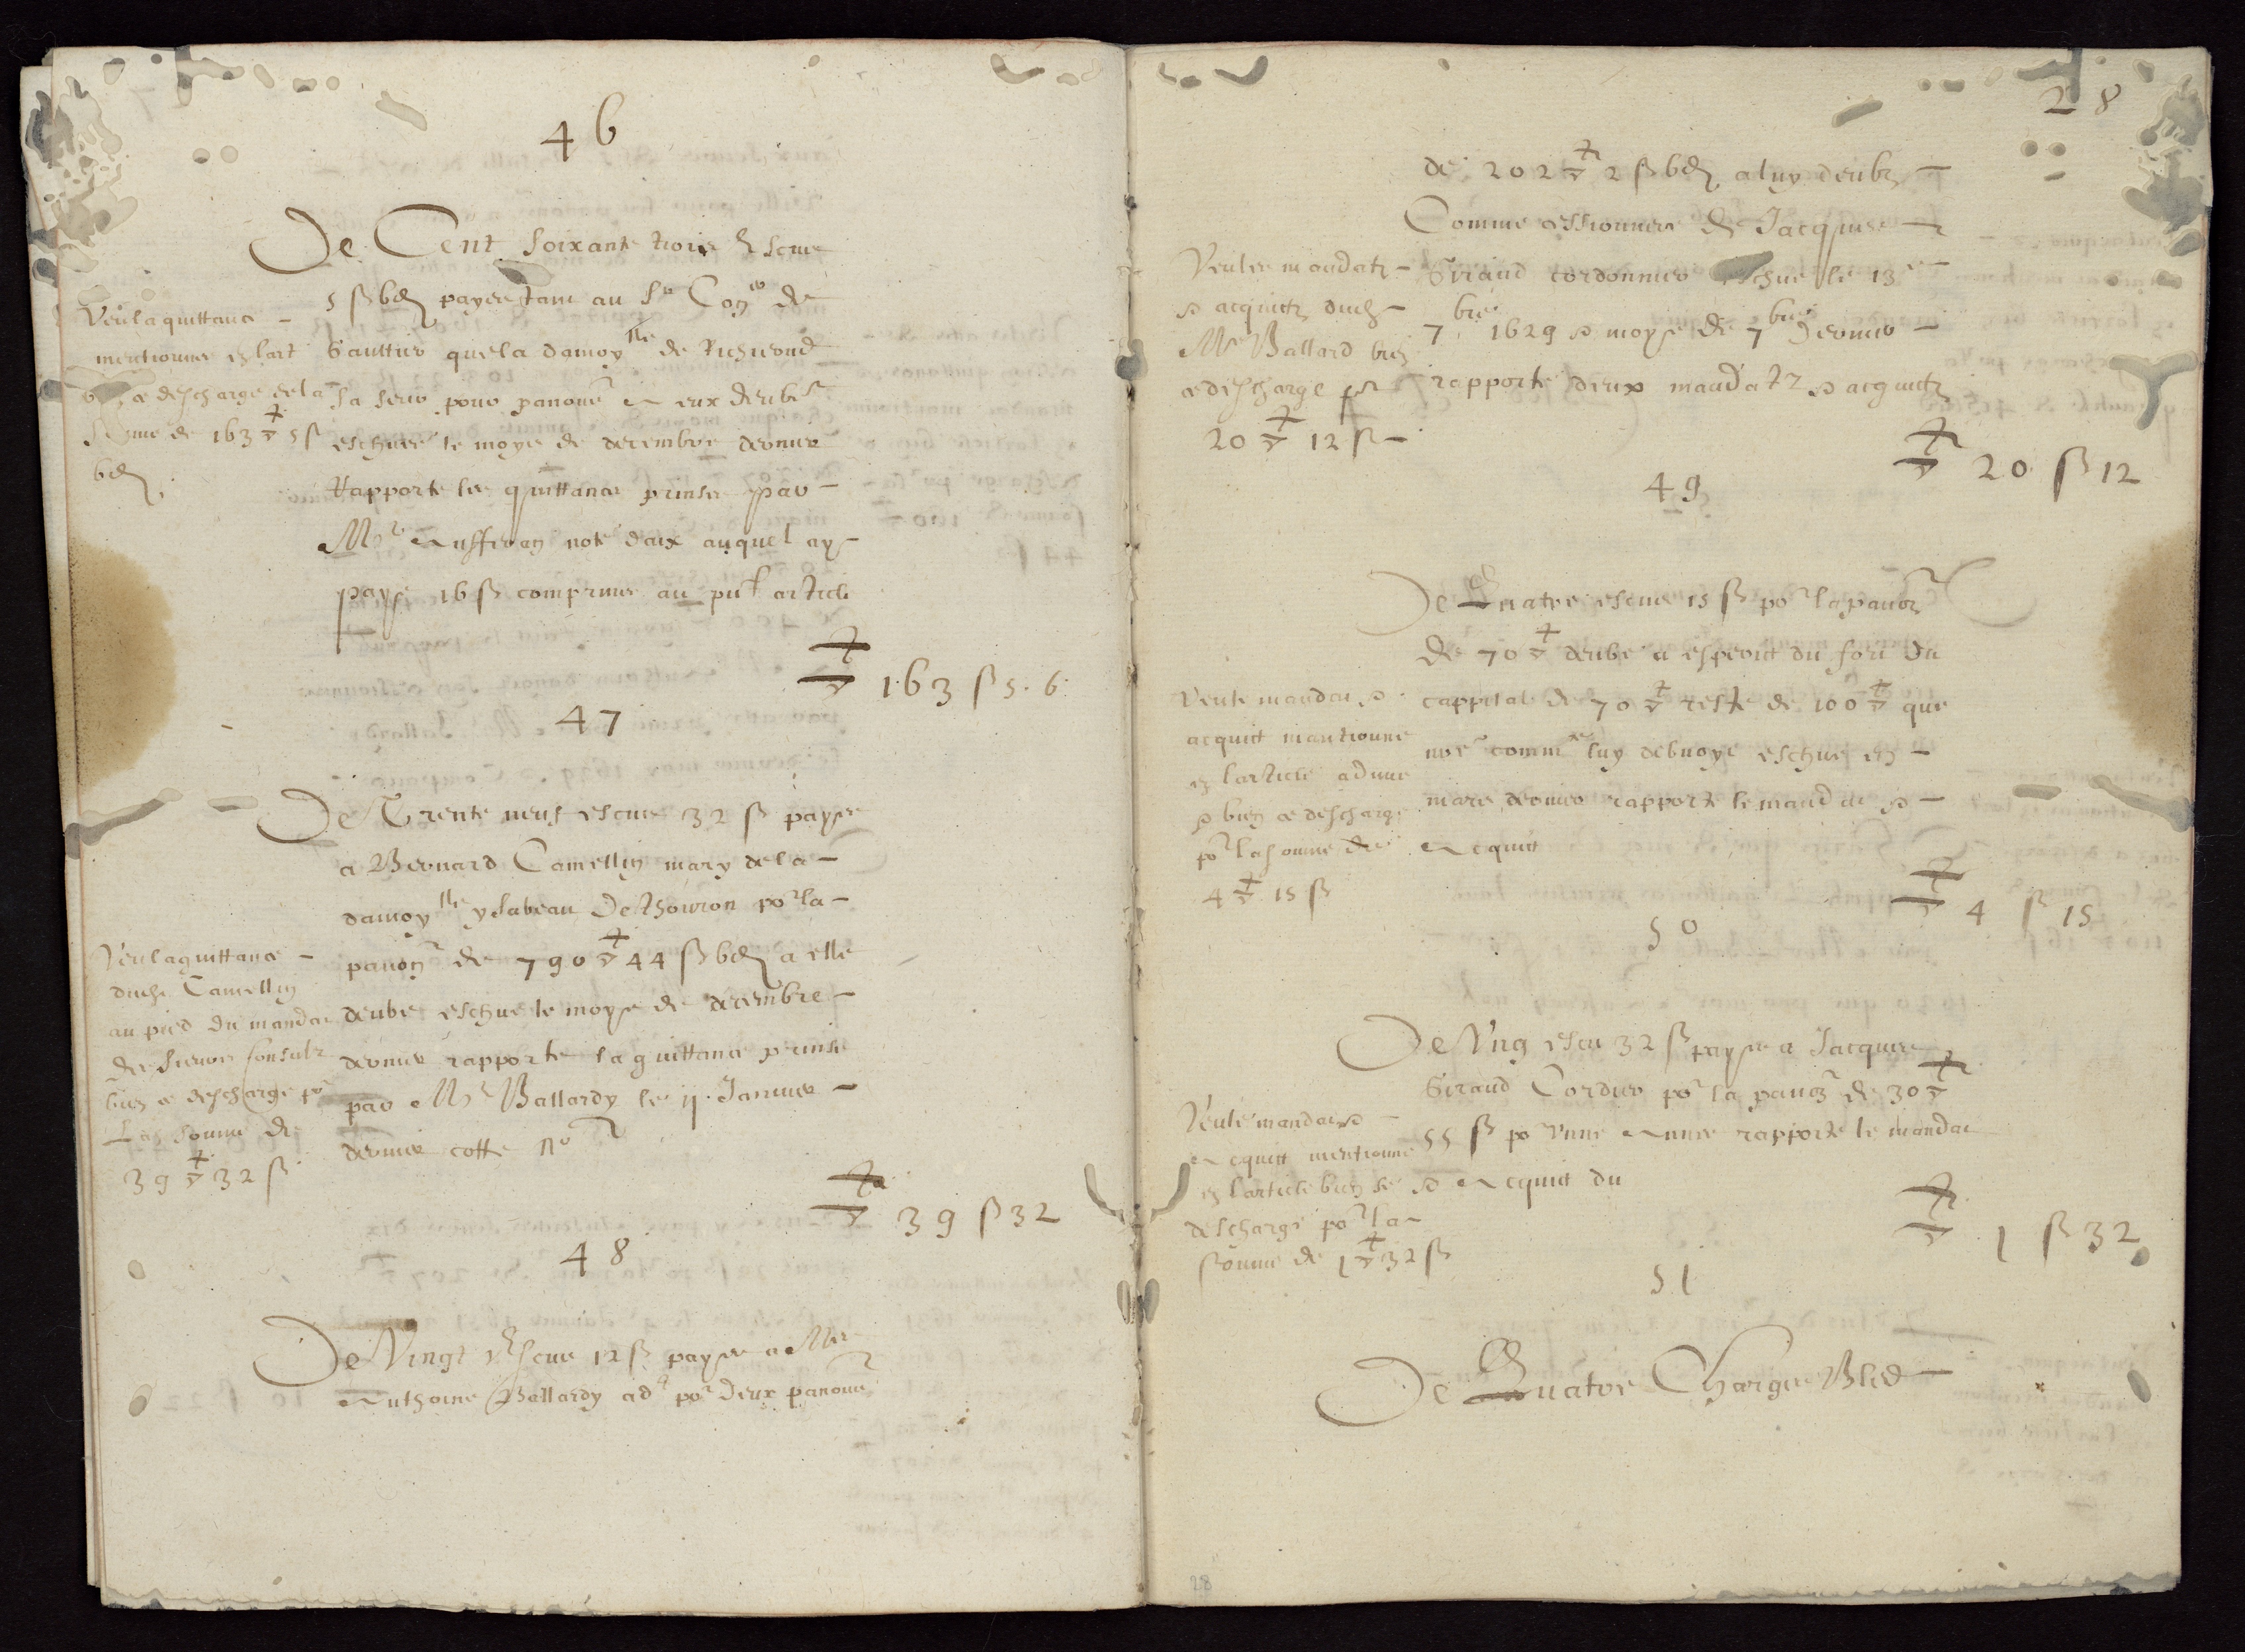 46
De Cent soixante trois escus
5 ß 6 d payes tant au Sr Con.er de
Gauttier que la damoylle de
sa seur pour panon a eux deubes
escheue le moys de decembre dernier
Rapporte les quittance prinse par
Mr not.e daix auquel ay
paye 16 ß comprins au pnt article
▽ 163 ß 5. 6.
Veu la quittance
mentionnee en lart
descharge de la
somme de 163 ▽ 5 ß
6 d
47
De Trente neuf escus 32 ß payes
a Bernard Camellin mary de la
damoylle ysabeau De Thouron por la
panon de 790 ▽ 44 ß 6 d a elle
deube escheue le moys de decembre
dernier rapporte la quittance prinse
par Mr Ballardy le 11 Janvier
dernier cotte no
▽ 39 ß 32
Veu la quittance
dudt Camellin
au pied du mandat
des sieurs consulz
bien descharge por
la somme de
39 ▽ 32 ß
48
De Vingt escus 12 ß payes a Mre
Anthoine Ballardy adt por deux panons
28
de 202 ▽ 2 ß 6 d a luy deubz
Comme cessionnere de Jacques
Giraud cordonnier escheue le 13e
7bre 1629 et moys de 7bre dernier
rapporte deux mandatz et acquictz
▽ 20 ß 12
Veu les mandatz
et acquictz dudt
Mr Ballard bien
descharge por
20 ▽ 12 ß
49
De Quatre escus 15 ß por la panon
de 70 ▽ deube a esperitt du fort du
cappital de 70 ▽ reste de 100 ▽ que
nre commte luy debvoye escheue en
mars dernier rapporte le mandat et
acquit
▽ 4 ß 15
Veu le mandat et
acquitt mantionne
en larticle admis
et bien descharge
por la somme de
4 ▽ 15 ß
50
De Ung escu 32 ß payes a Jacques
Giraud Cordier por la panon de 30 ▽
55 ß por une annee rapporte le mandat
et acquit du
▽ 1 ß 32
Veu le mandat et
acquitt mentionne
en larticle bien se
descharge por la
somme de 1 ▽ 32 ß
51
De Quatre Charges Bled
28